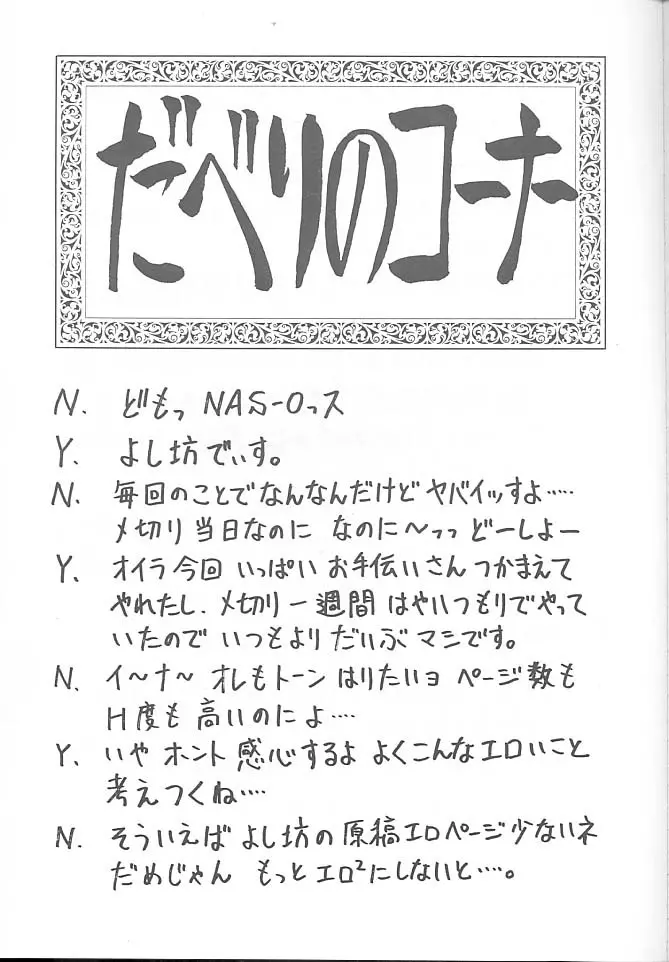 だべりのコーナー
N. どもっ NAS-Oっス
Y. よし坊でぃす。
N. 毎回のことでなんなんだけど ヤバイッすよ‥‥
メ切り当日なのに なのに〜っっ どーしよー
Y. オイラ今回 いっぱい お手伝いさん つかまえて
やれたし、メ切り一週間 はやいつもりでやって
いたので いつもより だいぶ マシです。
N. イ〜ナ〜 オレもトーン はりたいヨ ページ数も
H度も 高いのによ‥‥
Y. いや ホント 感心するよ よくこんなエロいこと
考えつくね‥‥
N. そういえば よし坊の 原稿エロページ少ないネ
だめじゃん もっと エロ²にしないと‥‥。